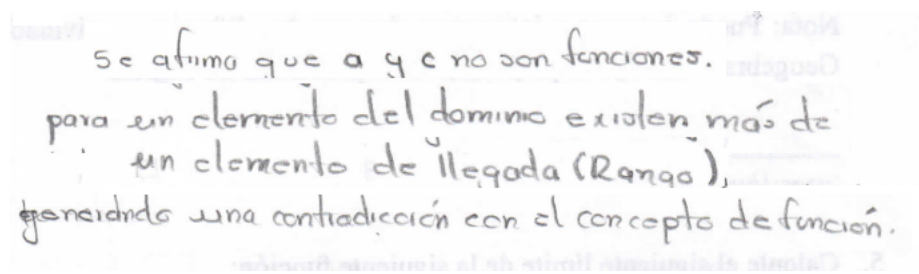 Se afirma que a y c no son funciones.
para un elemento del dominio existen más de
un elemento de llegada (Rango),
generando una contradicción con el concepto de función.